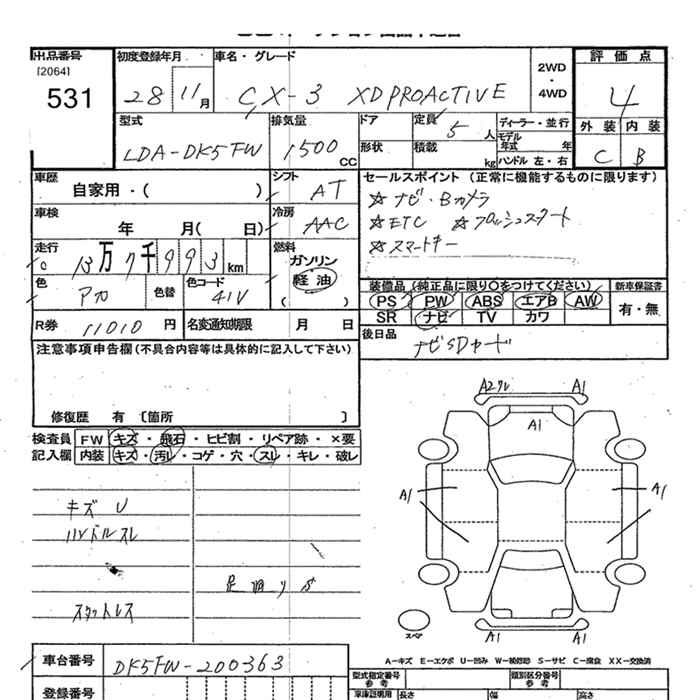 出品番号
[2064]
531
初度登録年月
28 11月
車名・グレード
CX-3 XD PROACTIVE
2WD
・
4WD
評価点
4
外装 内装
C B
型式
LDA-DK5FW
排気量
1500 CC
ドア
形状
定員 5 人
積載 kg
ディーラー・並行
モデル
年式 年
ハンドル 左・右
車歴
自家用・( )
シフト
AT
車検
年 月( 日)
冷房
AAC
走行
13万7千993 km
燃料
ガソリン
軽油
( )
色
色替
色コード
41V
R券 11010 円
名変通知期限 月 日
セールスポイント (正常に機能するものに限ります)
☆ナビ・Bカメラ
☆ETC ☆プッシュスタート
☆スマートキー
装備品(純正品に限り〇をつけてください)
PS PW ABS エアB AW
SR ナビ TV カワ
新車保証書
有・無
後日品
ナビSDカード
注意事項申告欄(不具合内容等は具体的に記入して下さい)
修復歴 有 〔箇所 〕
検査員
記入欄
FW キズ・飛石・ヒビ割・リペア跡・×要
内装 キズ・汚レ・コゲ・穴・スレ・キレ・破レ
キズ U
ハンドルスレ
スタットレス
A1
A1
A1
A1
A1
A1
スペア
A-キズ E-エクボ U-凹み W-補修跡 S-サビ C-腐食 XX-交換済
車台番号
DK5FW-200363
登録番号
型式指定番号
参考
類別区分番号
参考
車庫証明用
長さ
幅
高さ